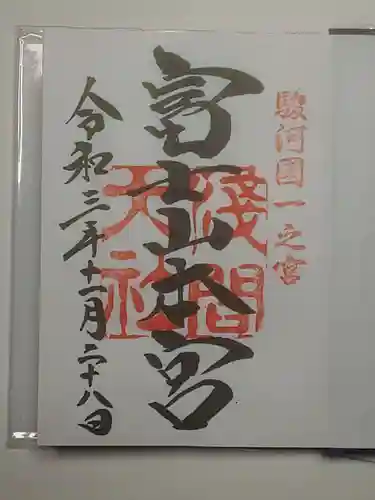 駿河國一之宮
富士山本宮
浅間大社
令和三年十一月二十八日